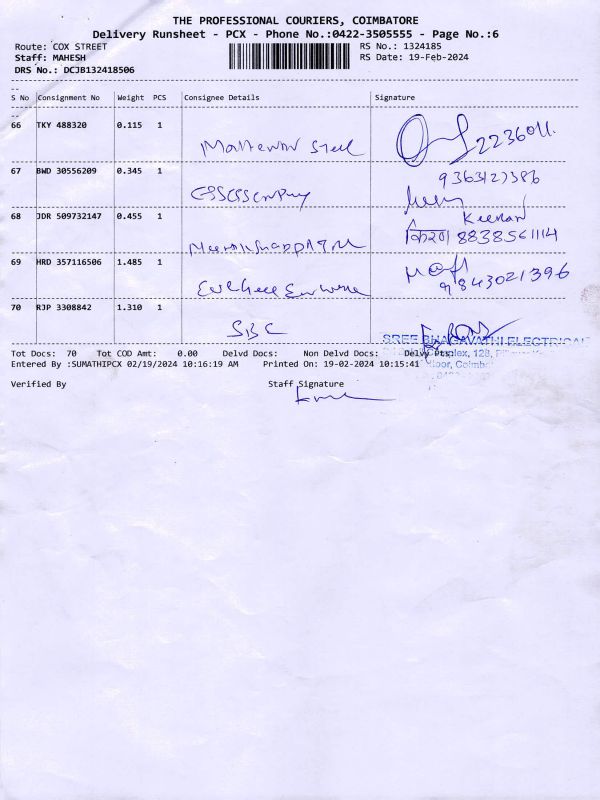 THE PROFESSIONAL COURIERS, COIMBATORE
Delivery Runsheet - PCX - Phone No.:0422-3505555 - Page No.:6
Route: COX STREET
RS No.: 1324185
Staff: MAHESH
RS Date: 19-Feb-2024
DRS No.: DCJB132418506
S No Consignment No Weight PCS Consignee Details Signature
66 TKY 488320 0.115 1
Steel
2236011.
67 BWD 30556209 0.345 1
9363127386
68 JDR 509732147 0.455 1
Keeran
किरण 8838561114
69 HRD 357116506 1.485 1
9843021396
70 RJP 3308842 1.310 1
SBC
SREE BHAGAVATHI ELECTRICAL
Tot Docs: 70 Tot COD Amt: 0.00 Delvd Docs: Non Delvd Docs: Delvy Pts:
Entered By :SUMATHIPCX 02/19/2024 10:16:19 AM Printed On: 19-02-2024 10:15:41
Verified By Staff Signature